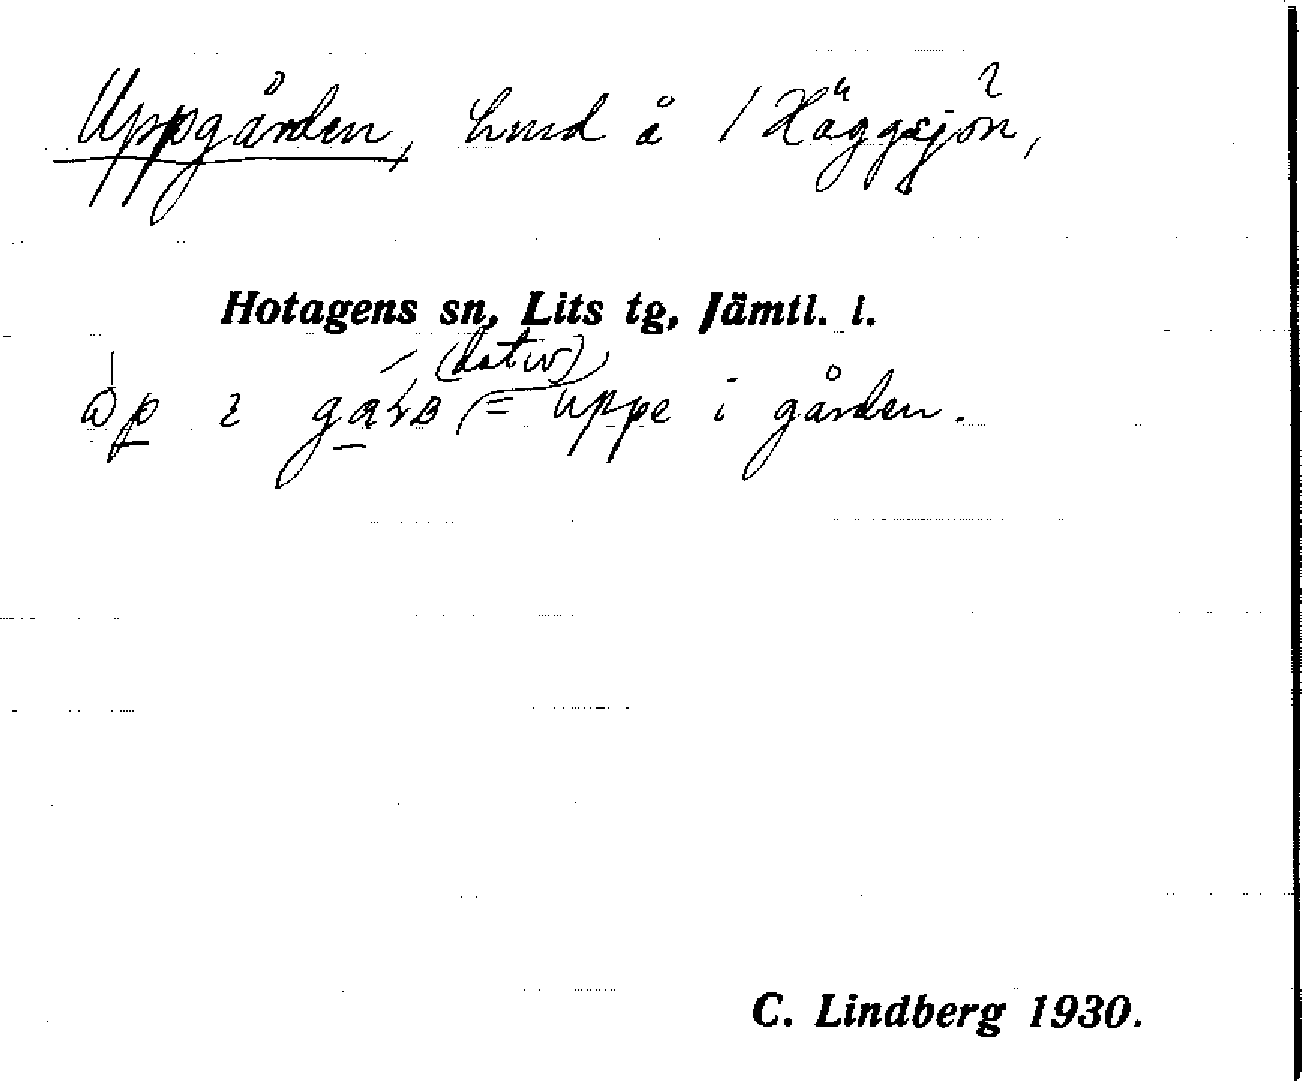 Uppgården, hmd å 1 Häggsjön,
Hotagens sn, Lits tg, Jämtl. l.
(dativ)
= uppe i gården.
C. Lindberg 1930.